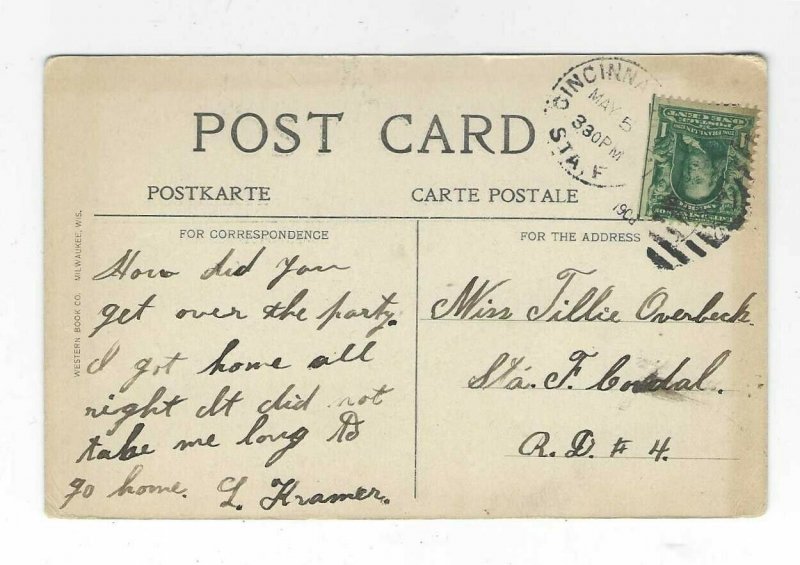 POST CARD
POSTKARTE
CARTE POSTALE
FOR CORRESPONDENCE
FOR THE ADDRESS
WESTERN BOOK CO. MILWAUKEE, WIS.
CINCINNA
MAY 5
330PM
STA. F
How did you
get over the party.
I got home all
right It did not
take me long to
go home. L. Kramer.
Miss Tillie Overbeck
Sta. F.
R.D. # 4.
ONE CENT
1